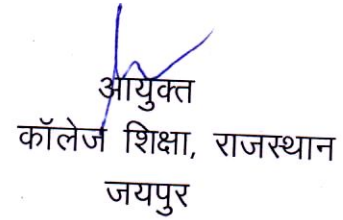 आयुक्त
कॉलेज शिक्षा, राजस्थान
जयपुर